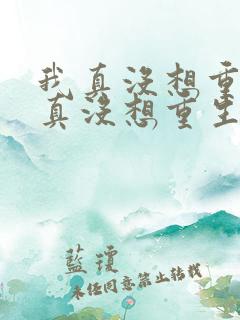 我真没想重
真没想重生
藍瓊
未经同意禁止转载